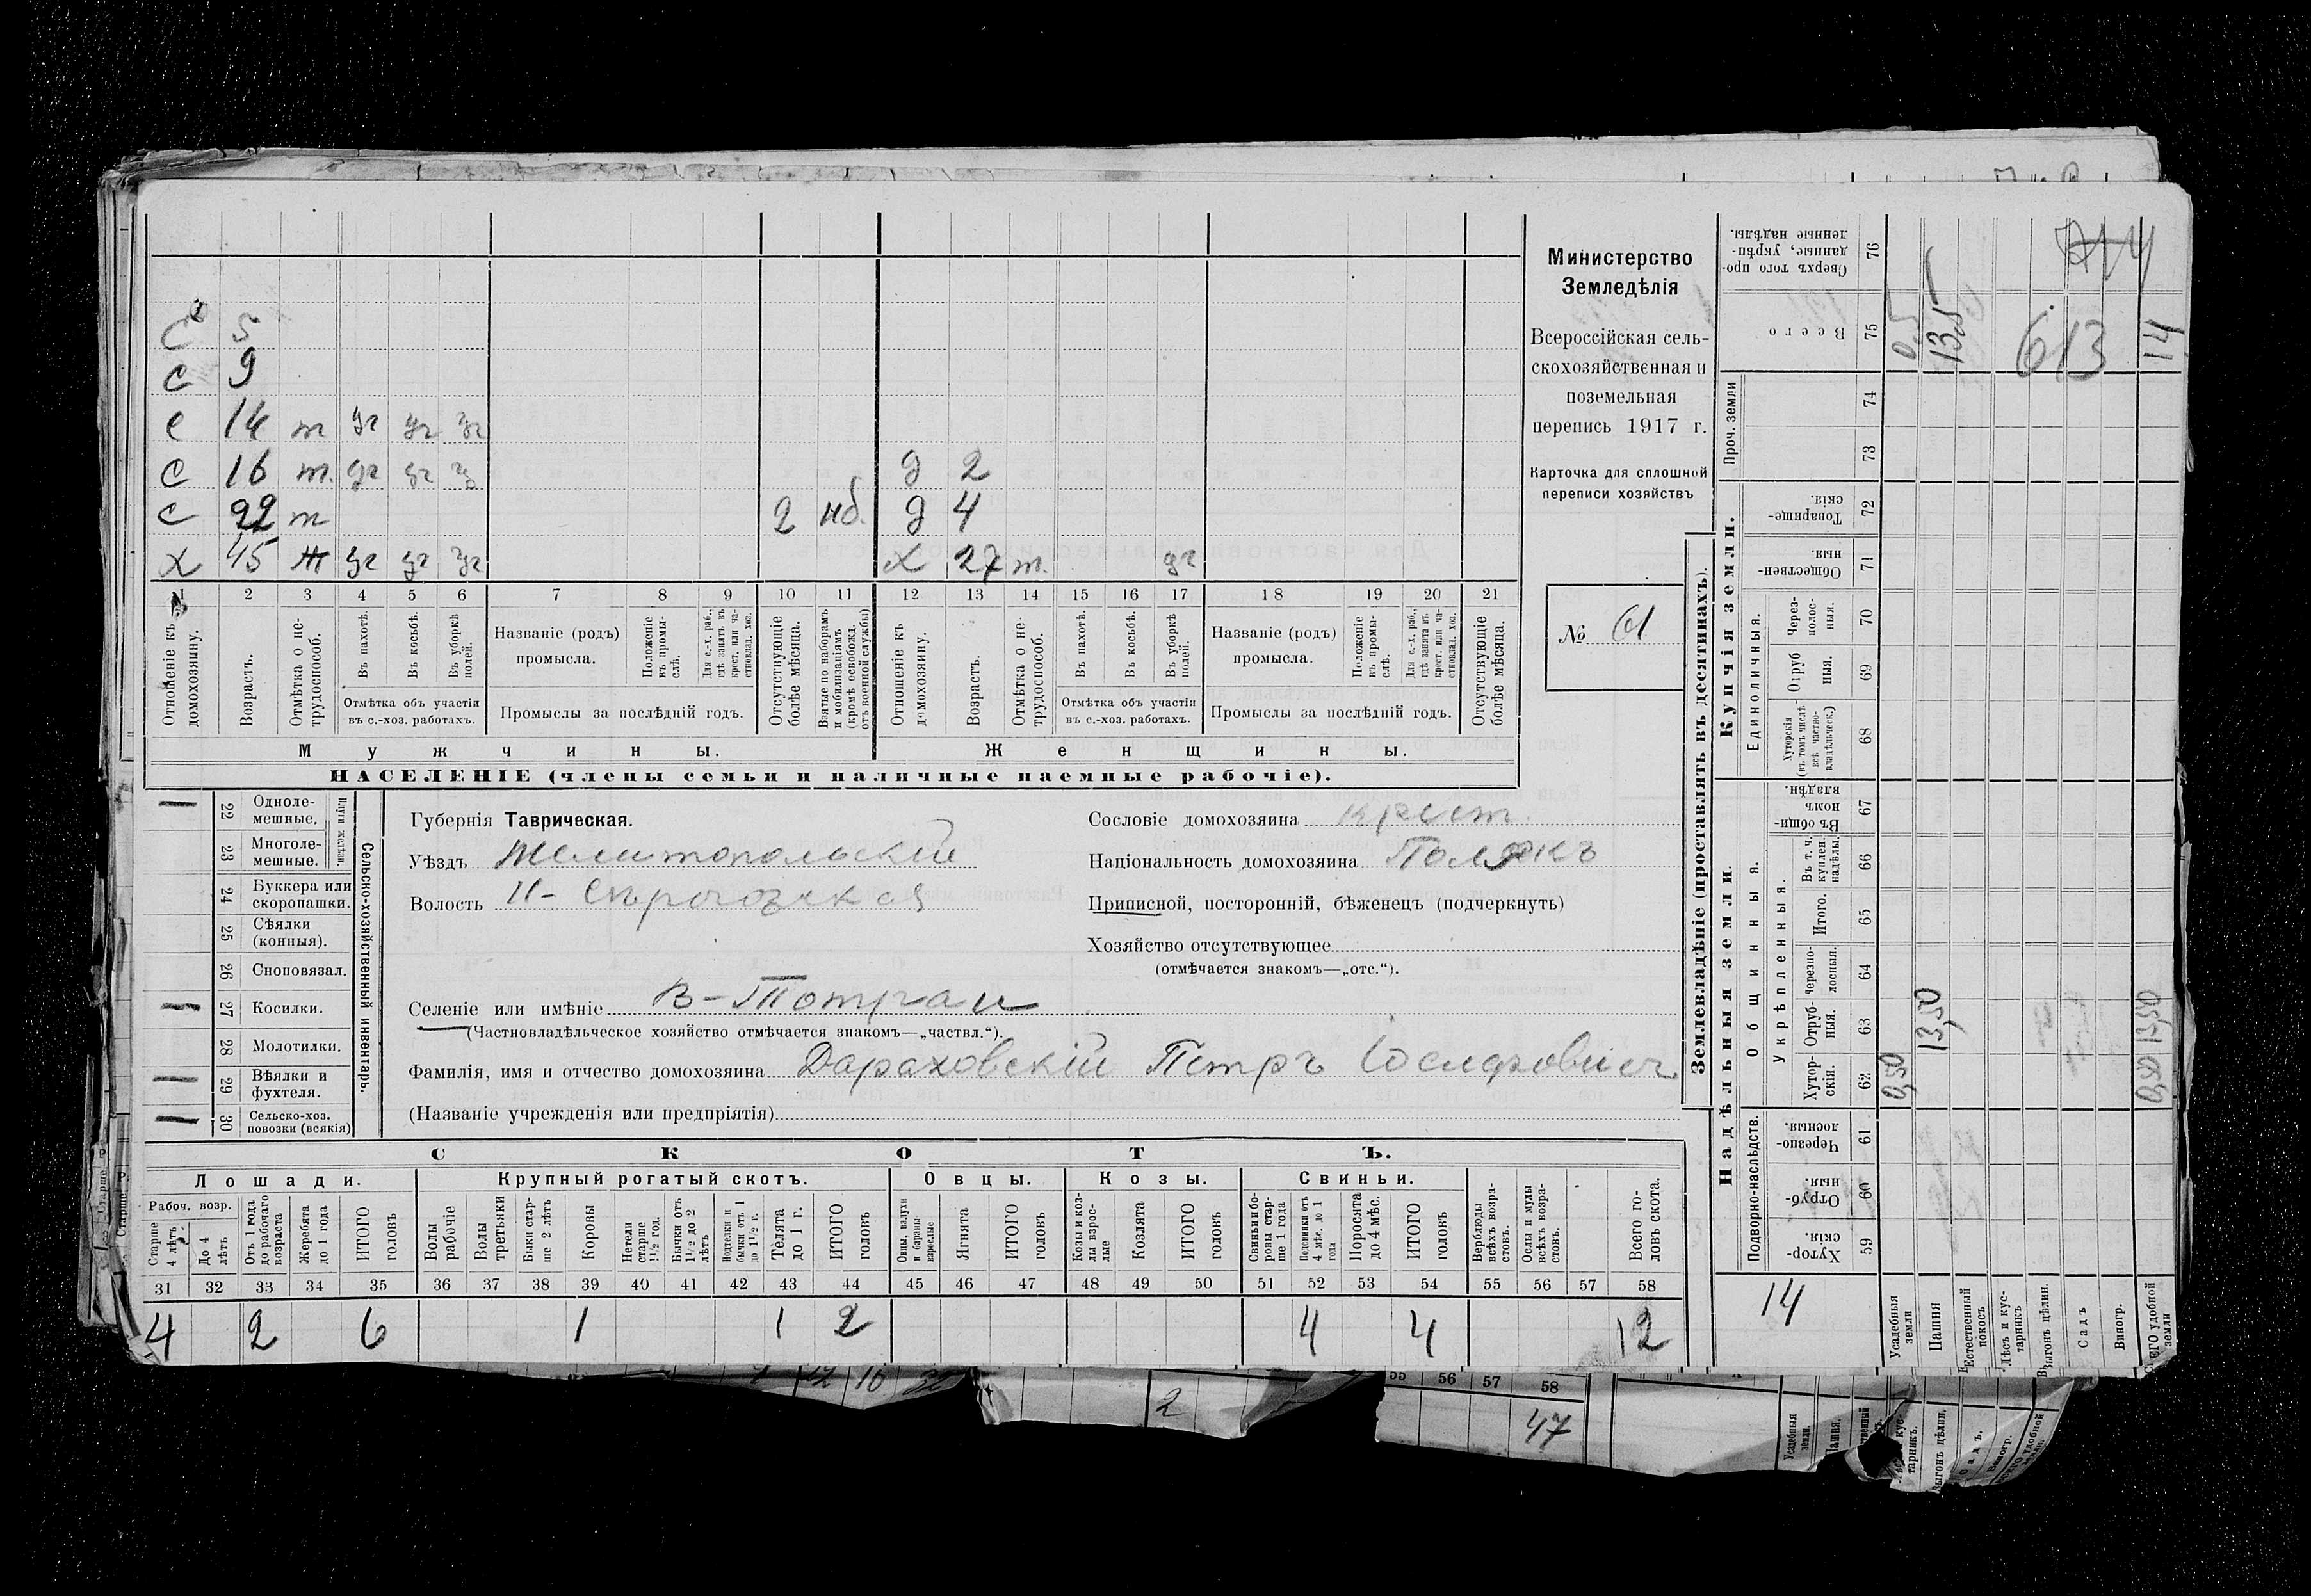 С 5
С 9
С 14 т дг дг дг
С 16 т. дг дг дг
С 22 т 2 нб.
Х 45 дг дг дг
д 2
д 4
Х 27 т. дг
1 2 3 4 5 6 7 8 9 10 11 12 13 14 15 16 17 18 19 20 21
Отношеніе къ домохозяину.
Возрастъ.
Отмѣтка о нетрудоспособ.
Въ пахотѣ.
Въ косьбѣ.
Въ уборкѣ полей.
Отмѣтка объ участіи въ с.-хоз. работахъ.
Названіе (родъ) промысла.
Положеніе въ промыслѣ.
Для с.-х. раб., гдѣ занятъ въ крест. или частновлад. хоз.
Промыслы за послѣдній годъ.
Отсутствующіе болѣе мѣсяца.
Взятые по наборамъ и мобилизаціямъ (кромѣ освобожд. отъ военной службы)
Отношеніе къ домохозяину.
Возрастъ.
Отмѣтка о нетрудоспособ.
Въ пахотѣ.
Въ косьбѣ.
Въ уборкѣ полей.
Отмѣтка объ участіи въ с.-хоз. работахъ.
Названіе (родъ) промысла.
Положеніе въ промыслѣ.
Для с.-х. раб., гдѣ занята въ крест. или частновлад. хоз.
Промыслы за послѣдній годъ.
Отсутствующіе болѣе мѣсяца.
Мужчины.
Женщины.
НАСЕЛЕНІЕ (члены семьи и наличные наемные рабочіе).
Министерство
Земледѣлія
Всероссійская сель-
скохозяйственная и
поземельная
перепись 1917 г.
Карточка для сплошной
переписи хозяйствъ
№ 61
22 Одноле-
мешные.
23 Многоле-
мешные.
Плуги желѣзн.
24 Буккера или
скоропашки.
25 Сѣялки
(конныя).
26 Сноповязал.
27 Косилки.
28 Молотилки.
29 Вѣялки и
фухтеля.
30 Сельско-хоз.
повозки (всякія)
Сельско-хозяйственный инвентарь.
Губернія Таврическая.
Уѣздъ Мелитопольскій
Волость Н-Сѣрогозская
Селеніе или имѣніе В-Тотраи
(Частновладѣльческое хозяйство отмѣчается знакомъ—„частвл.“).
Фамилія, имя и отчество домохозяина Дараховскій Петръ Іосифовичъ
(Названіе учрежденія или предпріятія)
Сословіе домохозяина крест.
Національность домохозяина Полякъ
Приписной, посторонній, бѣженецъ (подчеркнуть)
Хозяйство отсутствующее
(отмѣчается знакомъ—„отс.“).
СКОТЪ.
Лошади.
Крупный рогатый скотъ.
Овцы.
Козы.
Свиньи.
Рабоч. возр.
Старше 4 лѣтъ
До 4 лѣтъ
Отъ 1 года до рабочаго возраста
Жеребята до 1 года
ИТОГО головъ
Волы рабочіе
Волы третьяки
Быки старше 2 лѣтъ
Коровы
Нетели старше 1 1/2 год.
Бычки отъ 1 1/2 до 2 лѣтъ
Подтелки и бычки отъ 1 до 1 1/2 г.
Телята до 1 г.
ИТОГО головъ
Овцы, валухи и бараны взрослые
Ягнята
ИТОГО головъ
Козы и козлы взрослые
Козлята
ИТОГО головъ
Свиньи и боровы старше 1 года
Подсвинки отъ 4 мѣс. до 1 года
Поросята до 4 мѣс.
ИТОГО головъ
Верблюды всѣхъ возрастовъ.
Ослы и мулы всѣхъ возрастовъ.
Всего головъ скота.
31 32 33 34 35 36 37 38 39 40 41 42 43 44 45 46 47 48 49 50 51 52 53 54 55 56 57 58
4 2 6 1 1 2 4 4 12
Землевладѣніе (проставлять въ десятинахъ).
Надѣльныя земли.
Купчія земли.
Проч. земли
Подворно-наслѣдств.
Общинныя.
Укрѣпленныя.
Единоличныя.
Хуторскія. 59
Отрубныя 60
Черезполосныя. 61
Хуторскія. 62
Отрубныя. 63
Черезполосныя. 64
Итого. 65
Въ т. ч. куплен. надѣлы. 66
Въ общинномъ владѣн. 67
Хуторскія (въ томъ числѣ всѣ частновладѣльческ.) 68
Отрубныя. 69
Черезполосныя. 70
Общественныя. 71
Товарищескія. 72
73
74
Всего 75
Сверхъ того проданные, укрѣпленные надѣлы. 76
14
Усадебныя земли 0,50 0,5
Пашня 13,50 13,5
Естественный покосъ
Лѣсъ и кустарникъ
Выгонъ цѣлин.
Садъ
Виногр.
ВСЕГО удобной земли 0,50 13,50 14
613
714
55 56 57 58
2
47
Усадебныя земли.
Пашня.
тарникъ.
Выгонъ цѣлин.
Садъ.
Виногр.
удобной